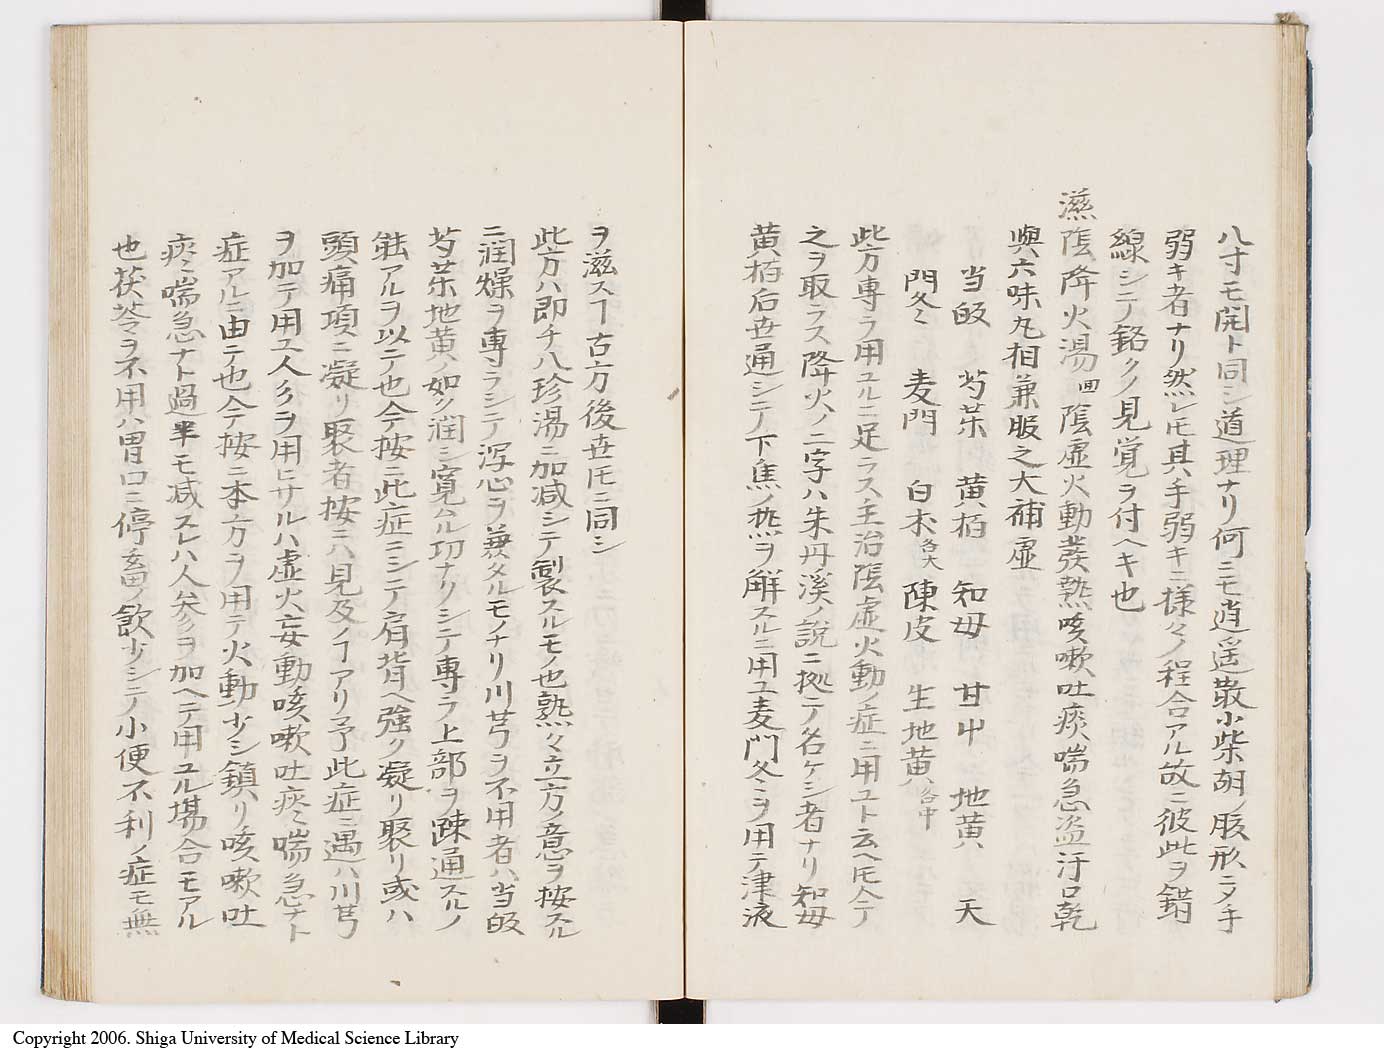 八寸モ開ト同シ道理ナリ何ニモ逍遥散小柴胡ノ腹形ニメ手
弱キ者ナリ然レ𪜈其手弱キニ様々ノ程合アル故ニ彼此ヲ錯
線シテ銘々ノ見覚ヲ付ヘキ也
滋陰降火湯 回 陰虚火動発熱咳嗽吐痰喘急盗汗口乾
與六味丸相兼服之大補虚
当皈 芍薬 黄栢 知母 甘艸 地黄 天
門冬 麦門 白朮各大 陳皮 生地黄各中
此方専ラ用ユルニ足ラス主治陰虚火動ノ症ニ用ユト云ヘ𪜈今テ
之ヲ取ラス降火ノ二字ハ朱丹溪ノ説ニ拠テ名ケシ者ナリ知母
黄栢后世通シテ下焦ノ熱ヲ解スルニ用ユ麦門冬ヲ用テ津液
ヲ滋スヿ古方後世𪜈ニ同シ
此方ハ即チ八珍湯ニ加减シテ製スルモノ也熟々立方ノ意ヲ按スル
ニ潤燥ヲ専ラシテ泻心ヲ兼タルモノナリ川芎ヲ不用者ハ当皈
芍薬地黄ノ如ク潤シ寛ル功ナクシテ専ラ上部ヲ疎通スルノ
能アルヲ以テ也今按ニ此症ニシテ肩背ヘ強ク凝リ聚リ或ハ
頭痛項ニ凝リ聚者按ニ八見及ノヿアリ予此症ニ遇ハ川芎
ヲ加テ用ユ人参ヲ用ヒサルハ虚火妄動咳嗽吐痰喘急ナト
症アルニ由テ也今按ニ本方ヲ用テ火動少シ鎮リ咳嗽吐
痰喘急ナト過半モ减スレハ人参ヲ加ヘテ用ユル場合モアル
也茯苓ヲ不用ハ胃口ニ停畜ノ飲少シテ小便不利ノ症モ無
Copyright 2006. Shiga University of Medical Science Library